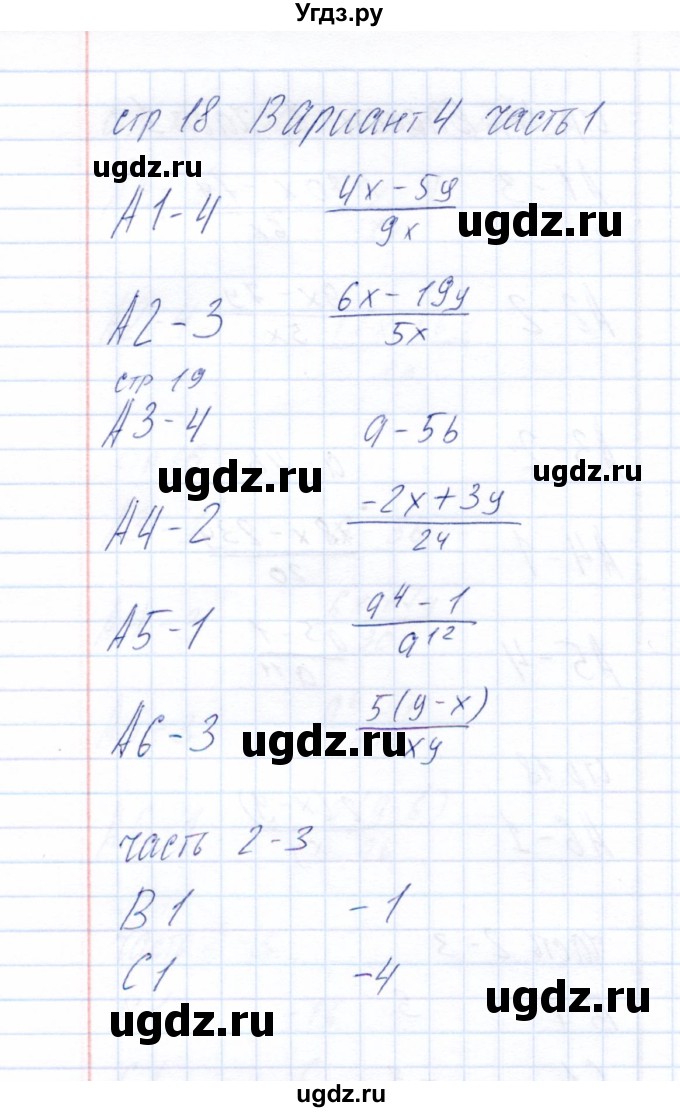 Угдз.ру
стр 18 Вариант 4 часть 1
ugdz.ru
А1-4 (4x-5y)/(9x)
ugdz.ru
А2-3 (6x-19y)/(5x)
стр 19
А3-4 a-5b
ugdz.ru
ugdz.ru
А4-2 (-2x+3y)/24
А5-1 (a^4-1)/(a^12)
А6-3 (5(y-x))/(xy)
ugdz.ru
часть 2-3
В1 -1
С1 -4
ugdz.ru
ugdz.ru
ugdz.ru